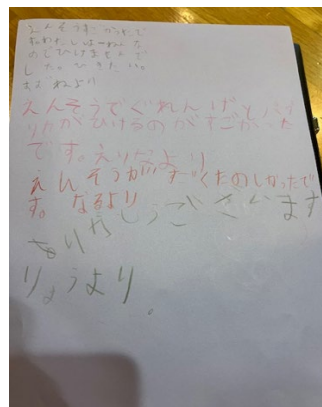 えんそうすごかったで
すわたしはーねんな
のじひけませんで
した。ひきたい。
あずねより
えんそうでぐれんげとパプ
リカがひけるのがすごかった
です。えりなより
えんそうがすごくたのしかったで
す。なるより
ありがとうございます
りょうより。